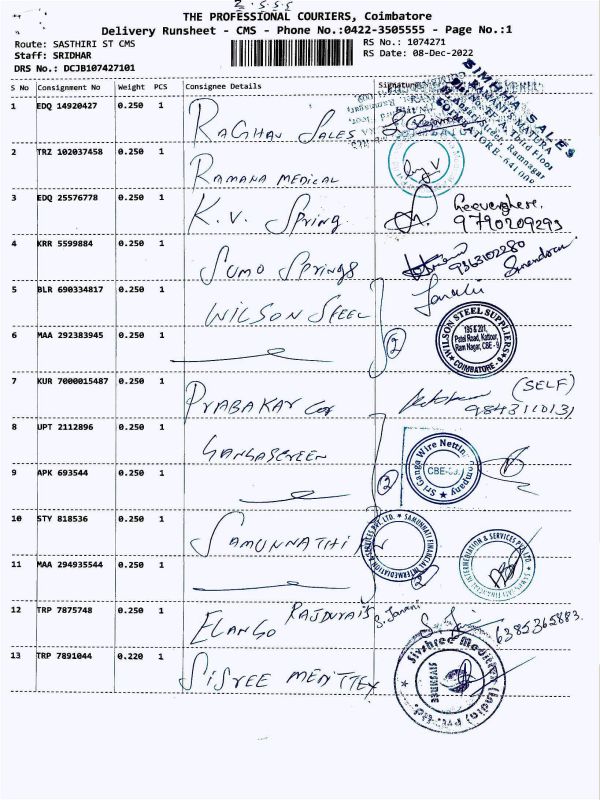 2 5 5 5
THE PROFESSIONAL COURIERS, Coimbatore
Delivery Runsheet - CMS - Phone No.:0422-3505555 - Page No.:1
Route: SASTHIRI ST CMS
RS No.: 1074271
Staff: SRIDHAR
RS Date: 08-Dec-2022
DRS No.: DCJB107427101
S No Consignment No Weight PCS Consignee Details Signature
1 EDQ 14920427 0.250 1 RAGHAN SALES
SIMHHA SALES
Third Floor
Ramnagar
COIMBATORE-641 009
2 TRZ 102037458 0.250 1 RAMANA MEDICAL
3 EDQ 25576778 0.250 1 K.V. Spring
Geeverghese.
9790209293
4 KRR 5599884 0.250 1 SUMO SPRINGS
9363102280
5 BLR 690334817 0.250 1 WILSON STEEL
WILSON STEEL SUPPLIERS
195 & 201,
Patel Road, Kattoor,
Ram Nagar, CBE - 9
COIMBATORE - 9
6 MAA 292383945 0.250 1
2
7 KUR 7000015487 0.250 1 PRABAKAR
(SELF)
9843110131
8 UPT 2112896 0.250 1 GANGASCREEN
Sri Ganga Wire Netting Company
CBE-
9 APK 693544 0.250 1
2
10 STY 818536 0.250 1 SAMUNNATHI
SAMUNNATI FINANCIAL INTERMEDIATION & SERVICES PVT. LTD.
11 MAA 294935544 0.250 1
INTERMEDIATION & SERVICES PVT. LTD.
12 TRP 7875748 0.250 1 ELANGO RAJDURAI
S. Janani
6385365883.
13 TRP 7891044 0.220 1 SISREE MEDITTEX
Sivshree Meditex (India) (P) Ltd.
SIVSHREE